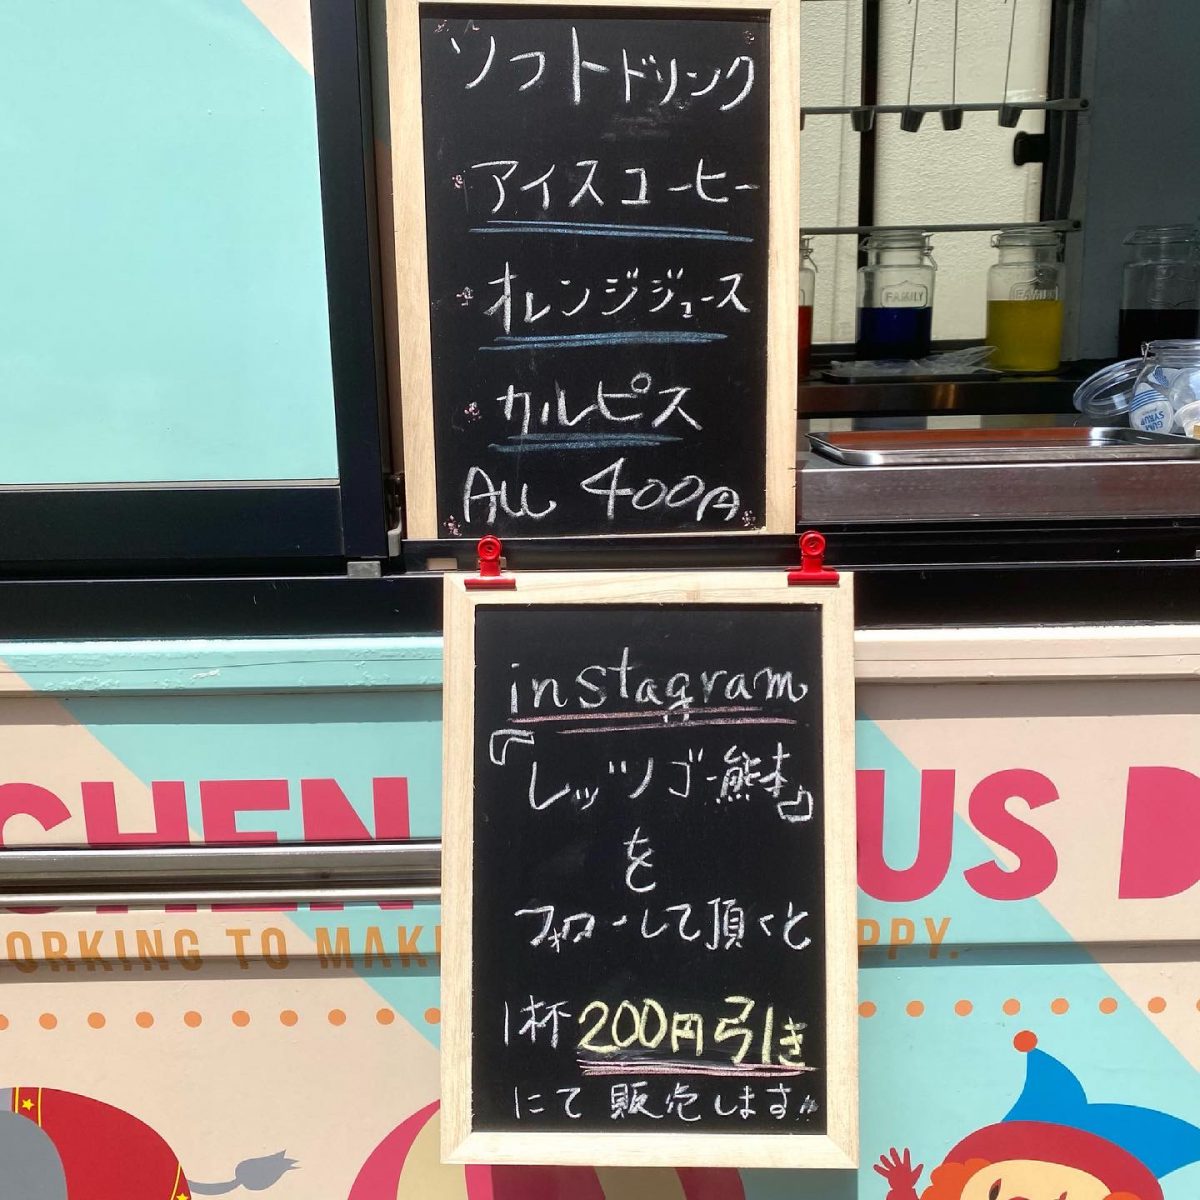 ソフトドリンク
アイスコーヒー
オレンジジュース
カルピス
ALL 400円
instagram
『レッツゴー熊本』
を
フォローして頂くと
1杯 200円引き
にて 販売します
FAMILY
FAMILY
GUM
SYRUP
CHEN
US D
ORKING TO MAK
PPY.